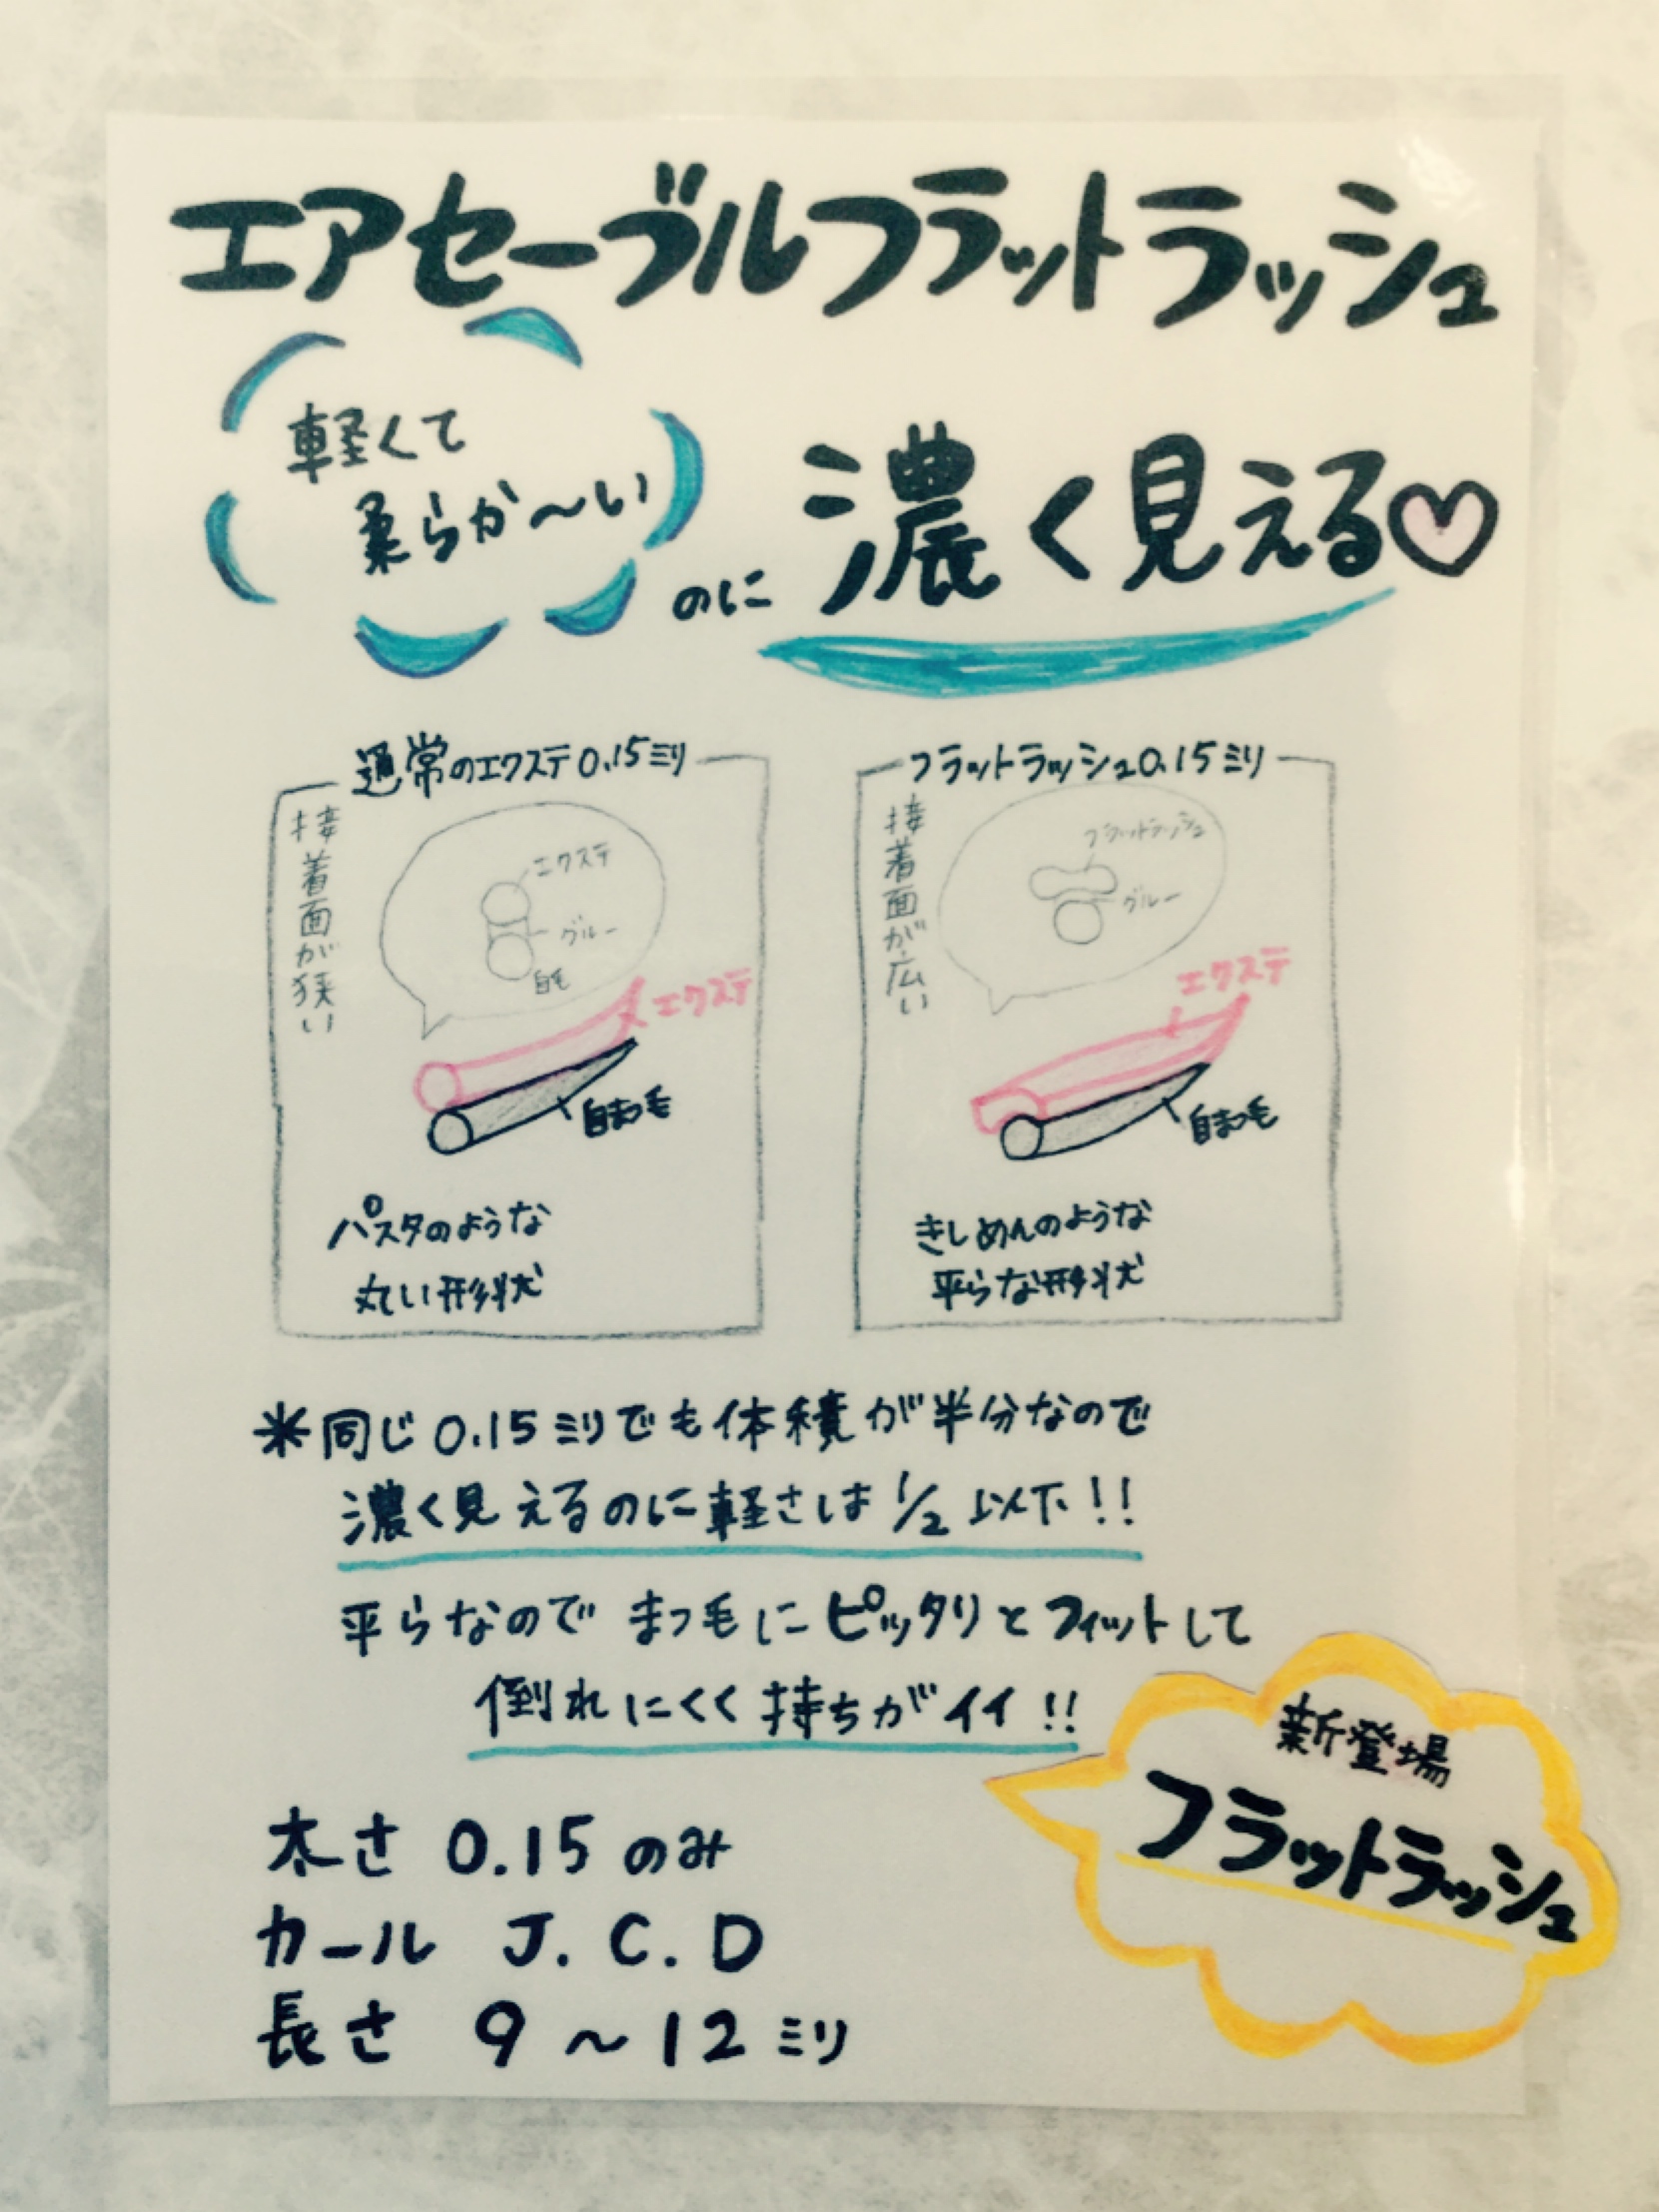 エアセーブルフラットラッシュ
軽くて
柔らか〜い
のに 濃く見える♡
通常のエクステ0.15ミリ
接着面が狭い
エクステ
グルー
自毛
エクステ
自まつ毛
パスタのような
丸い形状
フラットラッシュ0.15ミリ
接着面が広い
フラットラッシュ
グルー
エクステ
自まつ毛
きしめんのような
平らな形状
＊同じ0.15ミリでも体積が半分なので
濃く見えるのに軽さは1/2以下!!
平らなのでまつ毛にピッタリとフィットして
倒れにくく持ちがイイ!!
新登場
フラットラッシュ
太さ 0.15のみ
カール J.C.D
長さ 9〜12ミリ